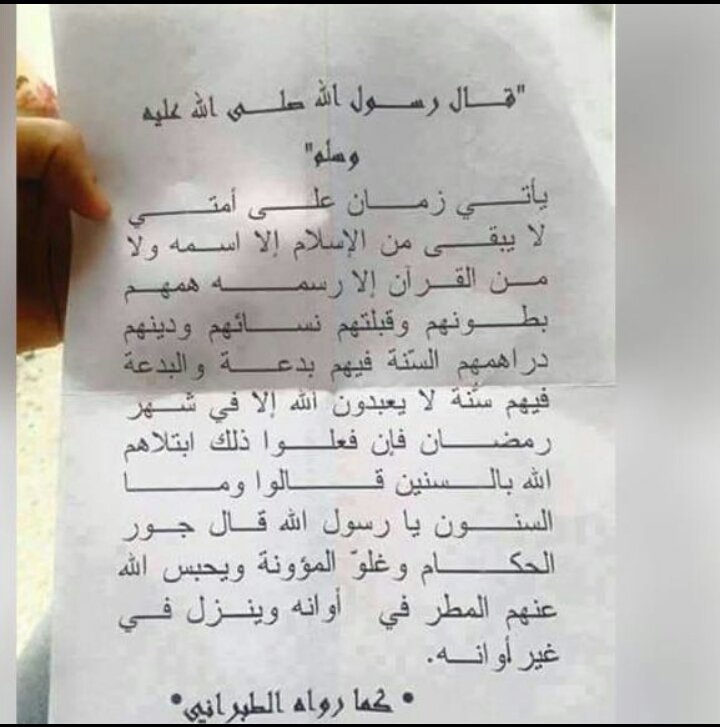 "قال رسول الله صلى الله عليه
وسلم"
يأتي زمان على أمتي
لا يبقى من الإسلام إلا اسمه ولا
من القرآن إلا رسمه همهم
بطونهم وقبلتهم نسائهم ودينهم
دراهمهم السّنة فيهم بدعة والبدعة
فيهم سنّة لا يعبدون الله إلا في شهر
رمضان فإن فعلوا ذلك ابتلاهم
الله بالسنين قالوا وما
السنون يا رسول الله قال جور
الحكام وغلوّ المؤونة ويحبس الله
عنهم المطر في أوانه وينزل في
غير أوانه.
• كما رواه الطبراني•